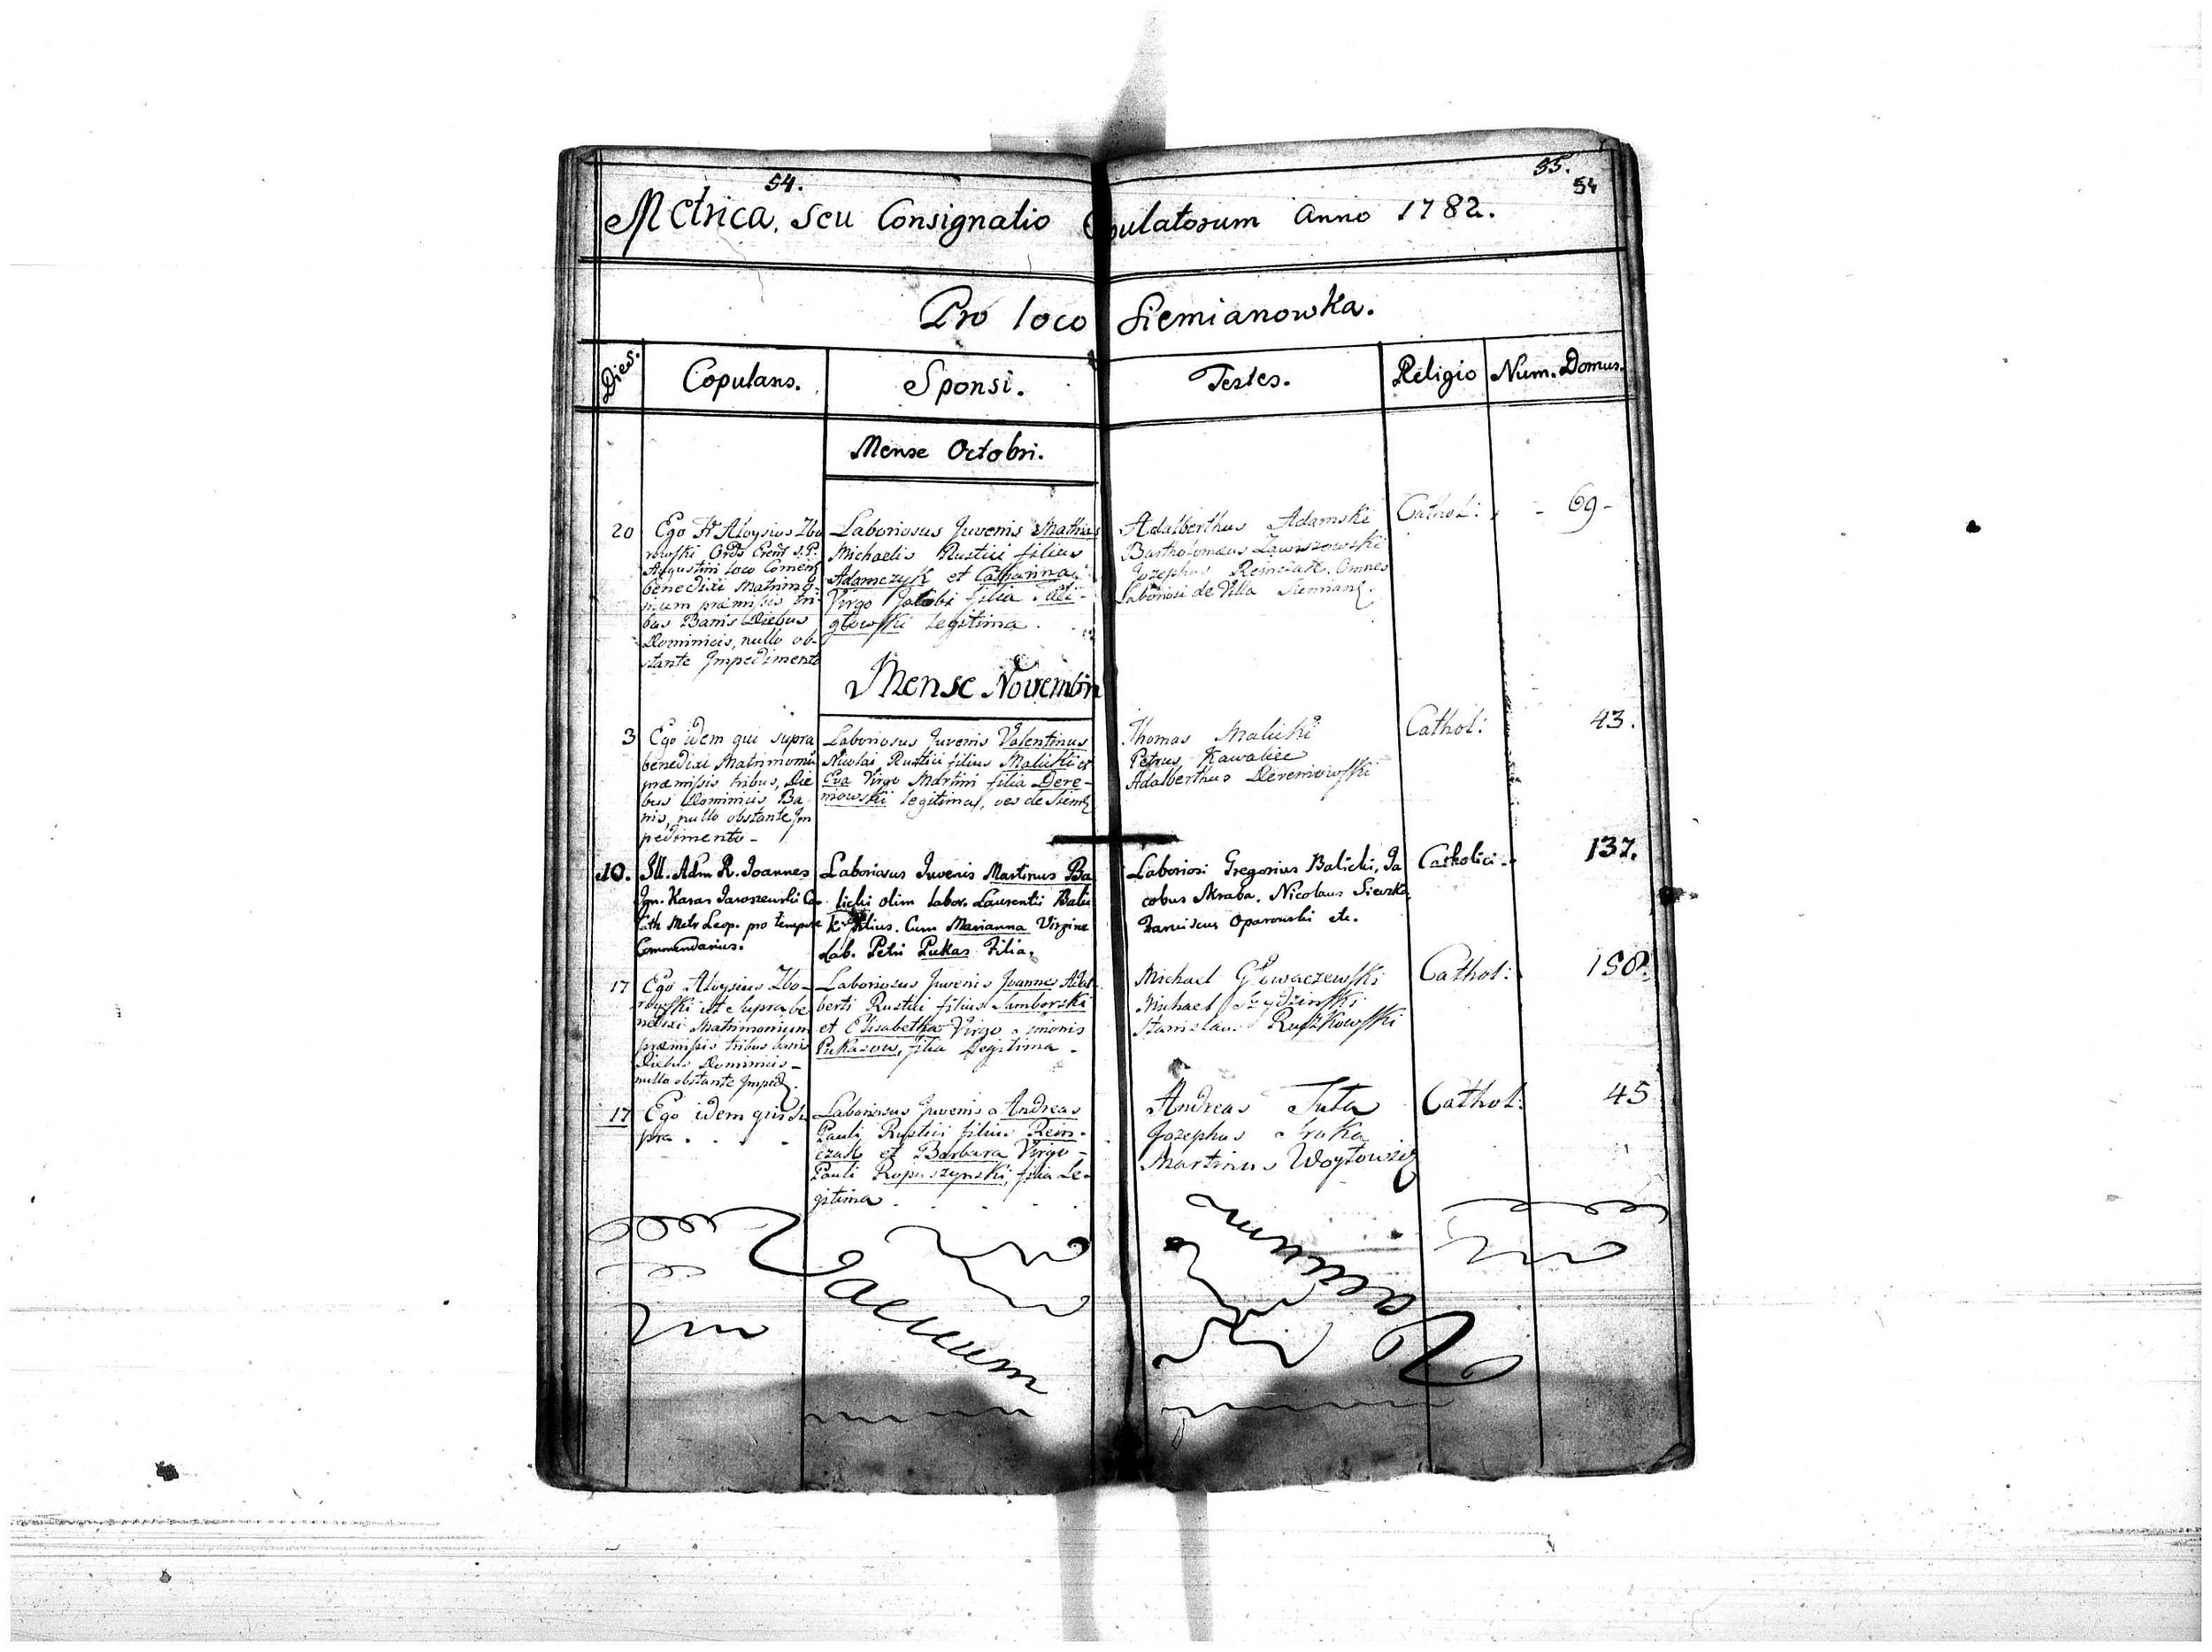 54.
55.
54
Metrica, seu Consignatio Copulatorum Anno 1782.
Pro loco Siemianowka.
Dies. Copulans. Sponsi. Testes. Religio Num. Domus.
Mense Octobri.
20
Ego Fr Aloysius Zbo
rowski Ords Erem S. P.
Augustini loco Comend
benedixi Matrimo-
nium præmissis tri-
bus Banis Diebus
Dominicis, nullo ob-
stante Impedimento
Laboriosus Juvenis Mathias
Michaelis Rustici filius
Adamczyk et Catharina
Virgo Jacobi filia
głowski legitima.
Adalberthus Adamski
Bartholomæus Zawiszowski
Jozephus Reinczak. Omnes
Laboriosi de Villa Siemian
Cathol:
- 69 -
Mense Novembri
3
Ego idem qui supra
benedixi Matrimoniū
præmissis tribus, Die
bus Dominicis Ba
nis, nullo obstante Im
pedimento -
Laboriosus Juvenis Valentinus
Nicolai Rustici filius Malicki et
Eva Virgo Martini filia Dere-
niowski legitima, oes de Siem
Thomas Malicki
Petrus Kawalec
Adalberthus Dereniowski
Cathol:
43.
10.
Ill. Adm R. Joannes
Ign. Karas Jaroszewski Ca
Cath Metr Leop. pro tempore
Commendarius.
Laboriosus Juvenis Martinus Ba
licki olim labor. Laurentii Balic
ki filius. Cum Marianna Virgine
Lab. Petri Pukas Filia.
Laboriosi Gregorius Balicki, Ja
cobus Skraba, Nicolaus Siewzka
Franciscus Oparowski etc.
Catholici.
137.
17
Ego Aloysius Zbo-
rowski ut supra be
nedixi Matrimonium
præmissis tribus banis
Diebus Dominicis -
nullo obstante Imped.
Laboriosus Juvenis Joannes Adal
berti Rustici filius Samborski
et Elisabetha Virgo Simonis
Pukasow, filia legitima -
Michael Głowaczewski
Michael Szydzinski
Stanislaus Ruszkowski
Cathol:
158.
17
Ego idem qui su
pra . . .
Laboriosus Juvenis Andreas
Pauli Rustici filius Rein-
czak et Barbara Virgo -
Pauli Ropuszynski, filia Le-
gitima
Andreas Tuta
Jozephus Sroka
Martinus Woytowicz
Cathol:
45
Vacuum
Vacuum